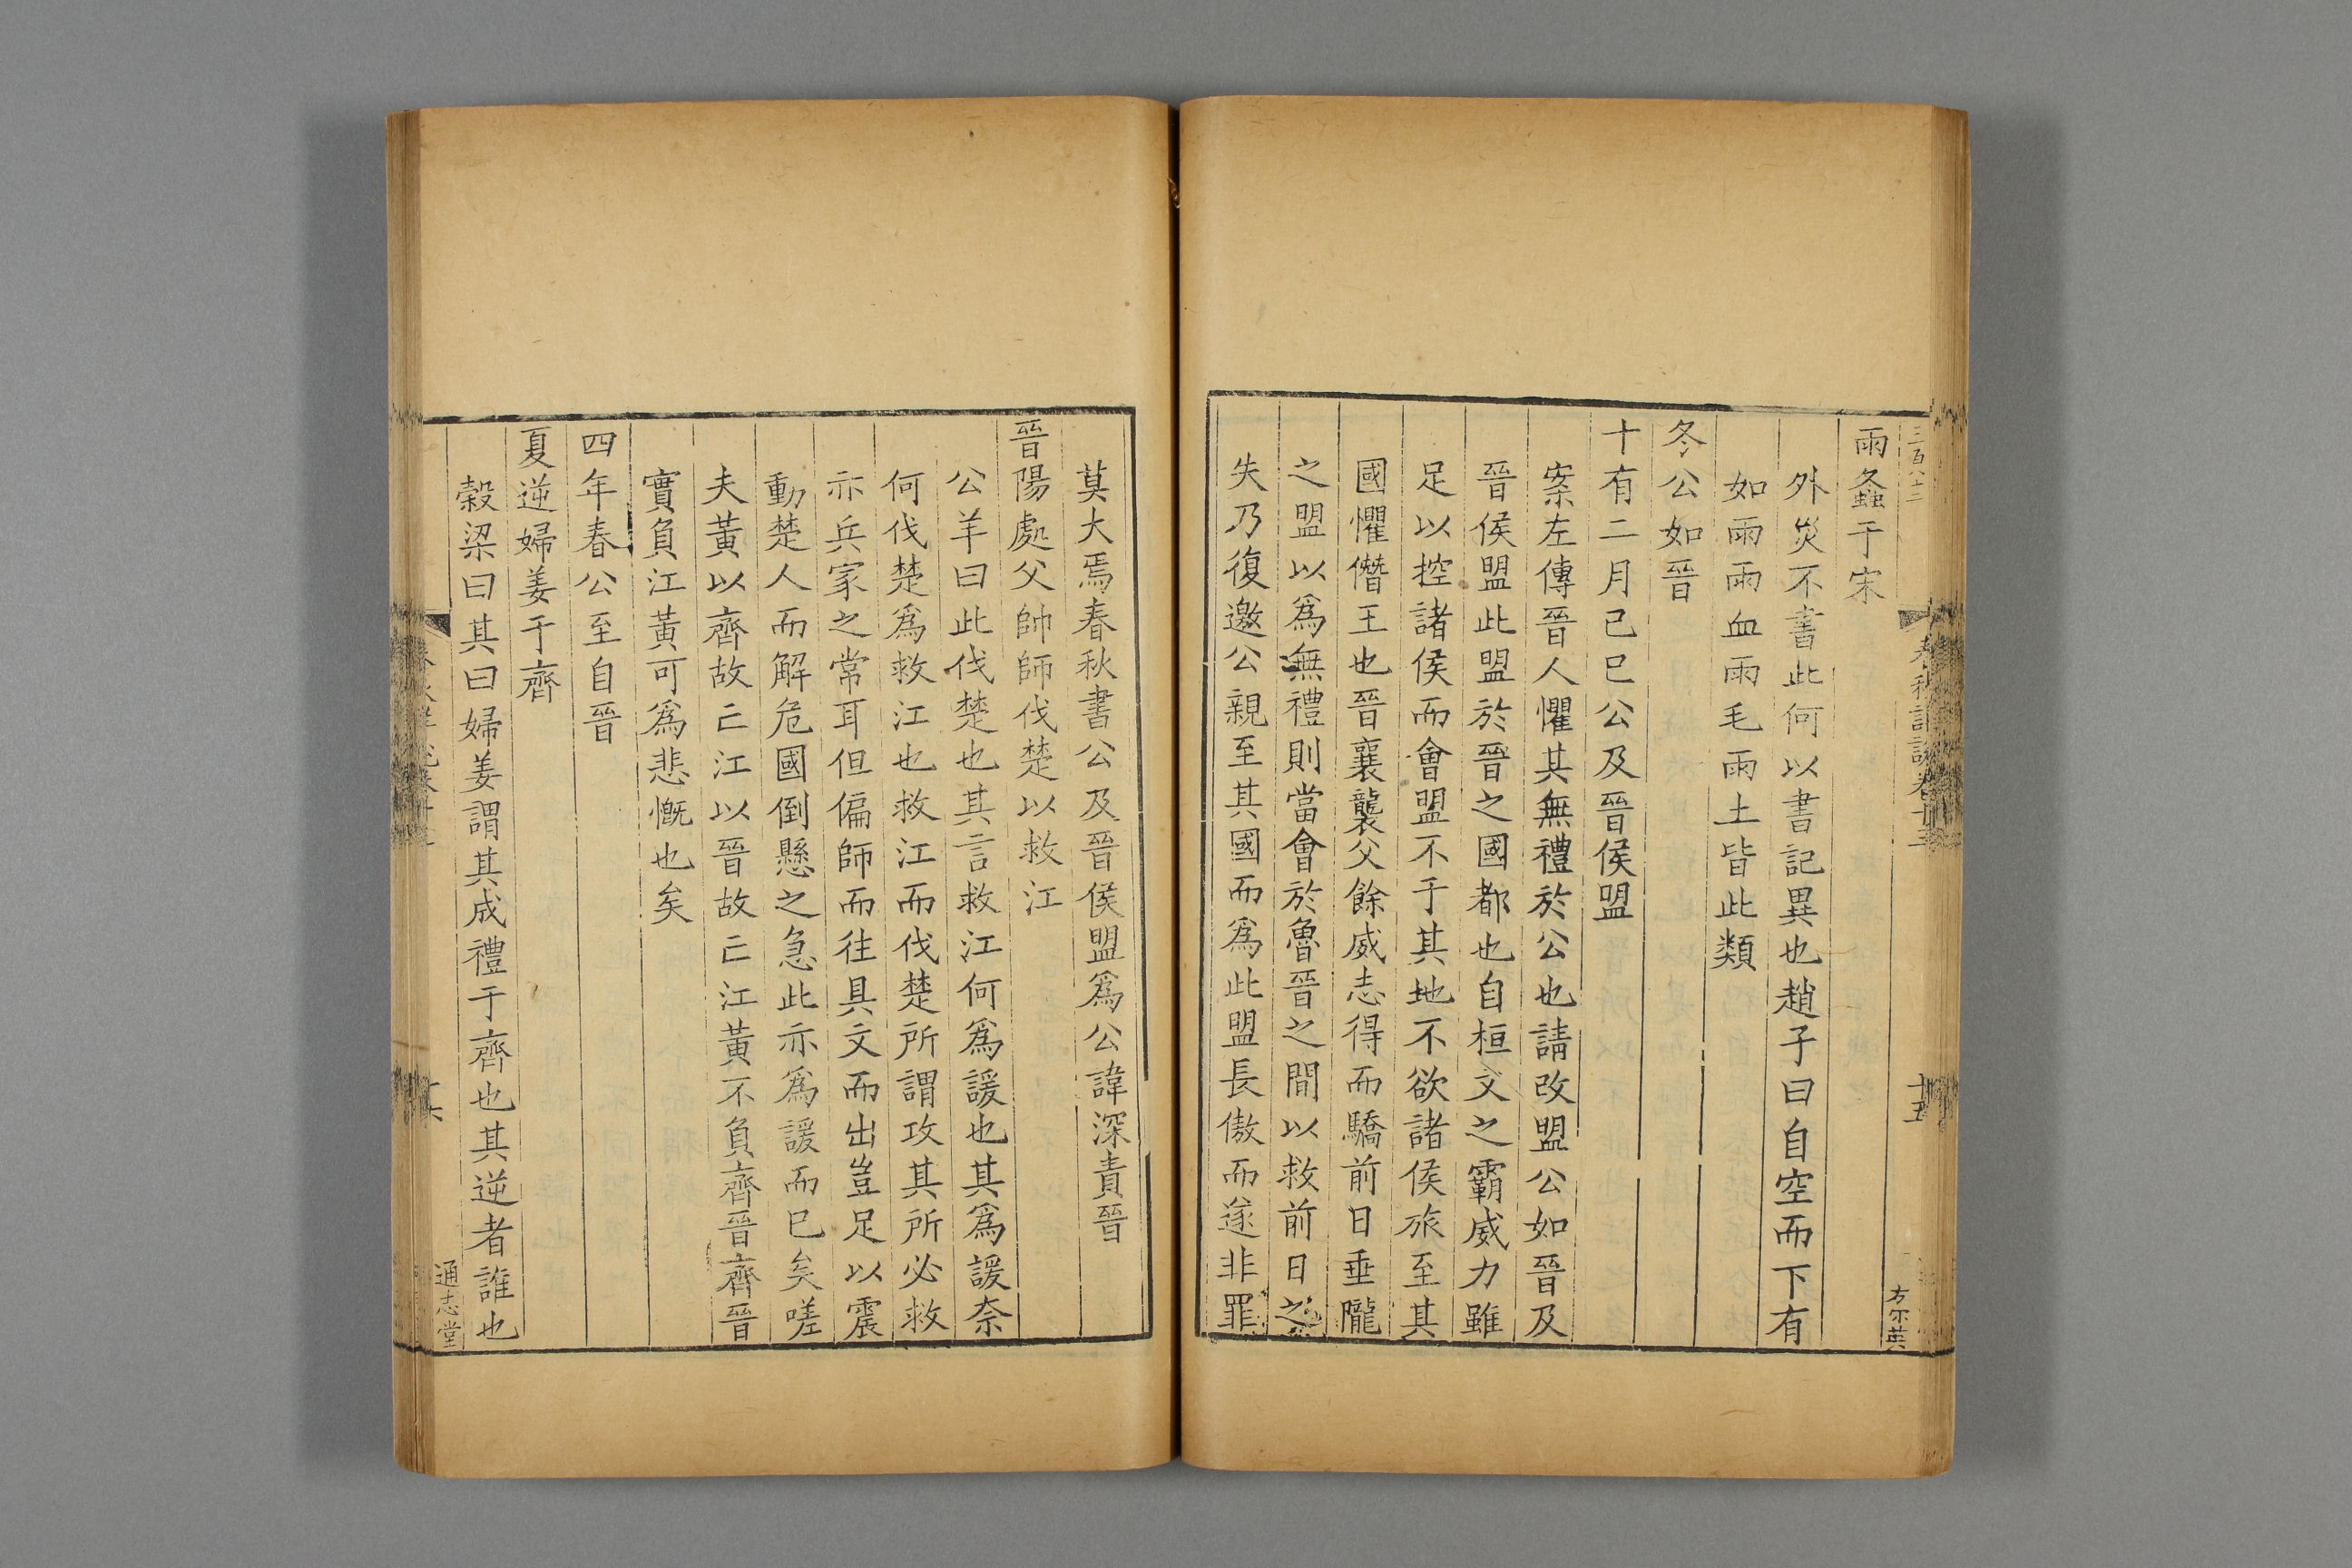 三百八十二
雨螽于宋
外災不書此何以書記異也趙子曰自空而下有
如雨雨血雨毛雨土皆此類
冬公如晉
十有二月己巳公及晉侯盟
案左傳晉人懼其無禮於公也請改盟公如晉及
晉侯盟此盟於晉之國都也自桓文之霸威力雖
足以控諸侯而會盟不于其地不欲諸侯旅至其
國懼僭王也晉襄襲父餘威志得而驕前日垂隴
之盟以爲無禮則當會於魯晉之間以救前日之
失乃復邀公親至其國而爲此盟長傲而遂非罪
莫大焉春秋書公及晉侯盟爲公諱深責晉
晉陽處父帥師伐楚以救江
公羊曰此伐楚也其言救江何爲諼也其爲諼奈
何伐楚爲救江也救江而伐楚所謂攻其所必救
亦兵家之常耳但偏師而往具文而出豈足以震
動楚人而解危國倒懸之急此亦爲諼而已矣嗟
夫黃以齊故亡江以晉故亡江黃不負齊晉齊晉
實負江黃可爲悲慨也矣
四年春公至自晉
夏逆婦姜于齊
穀梁曰其曰婦姜謂其成禮于齊也其逆者誰也
通志堂